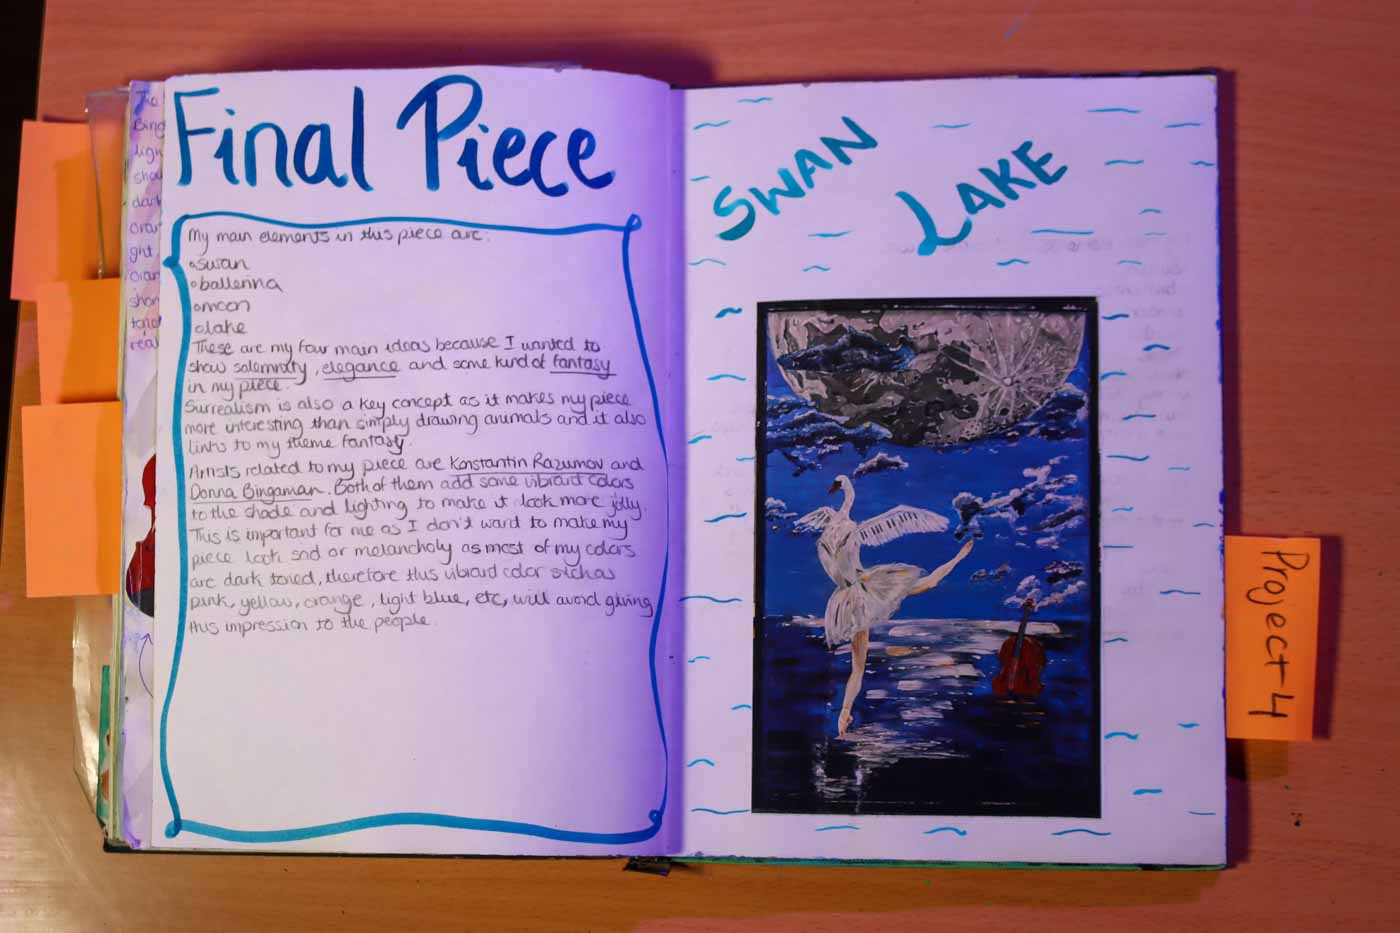 The
Bing
ligh
shou
dark
oran
ght
oran
shon
tend
real
Final Piece
My main elements in this piece are:
•swan
•ballerina
•moon
•lake
These are my four main ideas because I wanted to
show solemnity, elegance and some kind of fantasy
in my piece.
Surrealism is also a key concept as it makes my piece
more interesting than simply drawing animals and it also
links to my theme fantasy.
Artists related to my piece are Konstantin Razumov and
Donna Bingaman. Both of them add some vibrant colors
to the shade and lighting to make it look more jolly.
This is important for me as I don't want to make my
piece look sad or melancholy as most of my colors
are dark toned, therefore this vibrant color such as
pink, yellow, orange, light blue, etc, will avoid giving
this impression to the people.
SWAN
LAKE
Project-4